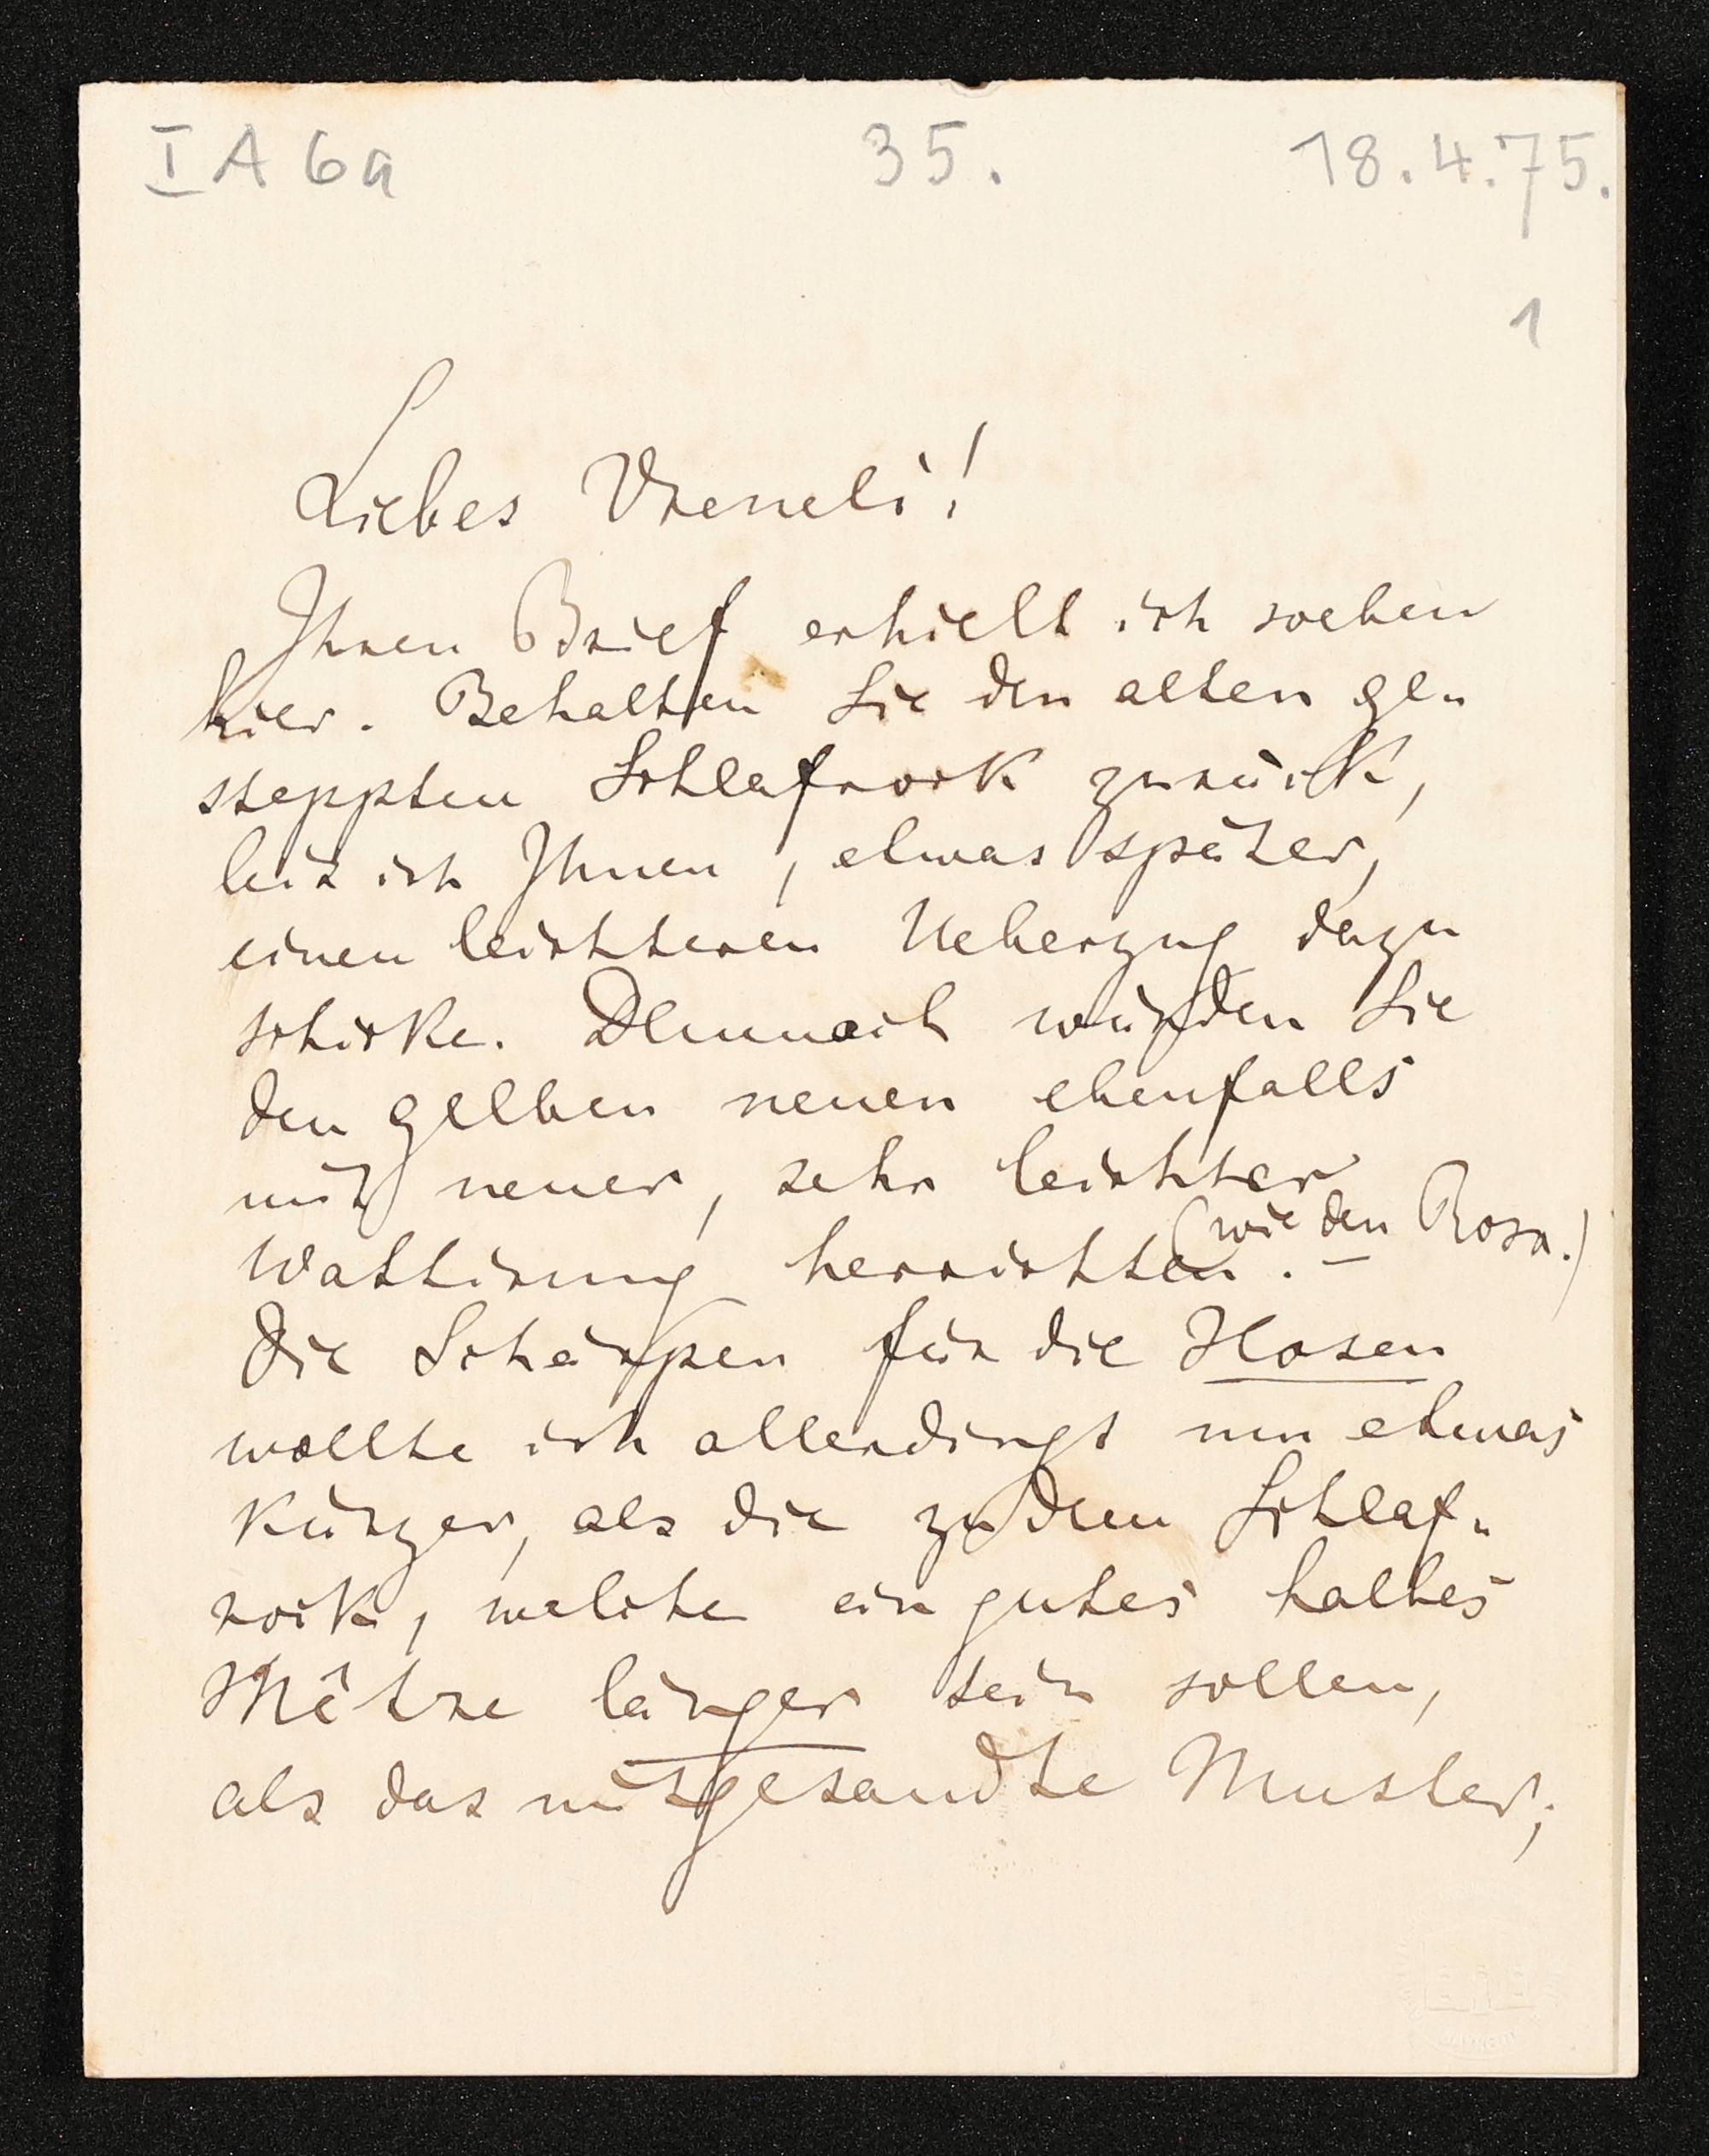 I A 6a 35. 18.4.75.
1
Liebes Vreneli!
Ihren Brief erhielt ich soeben
hier. Behalten Sie den alten ge-
steppten Schlafrock zurück,
bis ich Ihnen, etwas später,
einen leichteren Ueberzug dazu
schicke. Demnach würden Sie
den gelben neuen ebenfalls
mit neuer, sehr leichter
(wie den Rosa.)
Wattirung herrichten. –
Die Schärpen für die Hosen
wollte ich allerdings um etwas
kürzer, als die zu dem Schlaf-
rock, welche ein gutes halbes
Mètre länger sein sollen,
als das mitgesandte Muster;